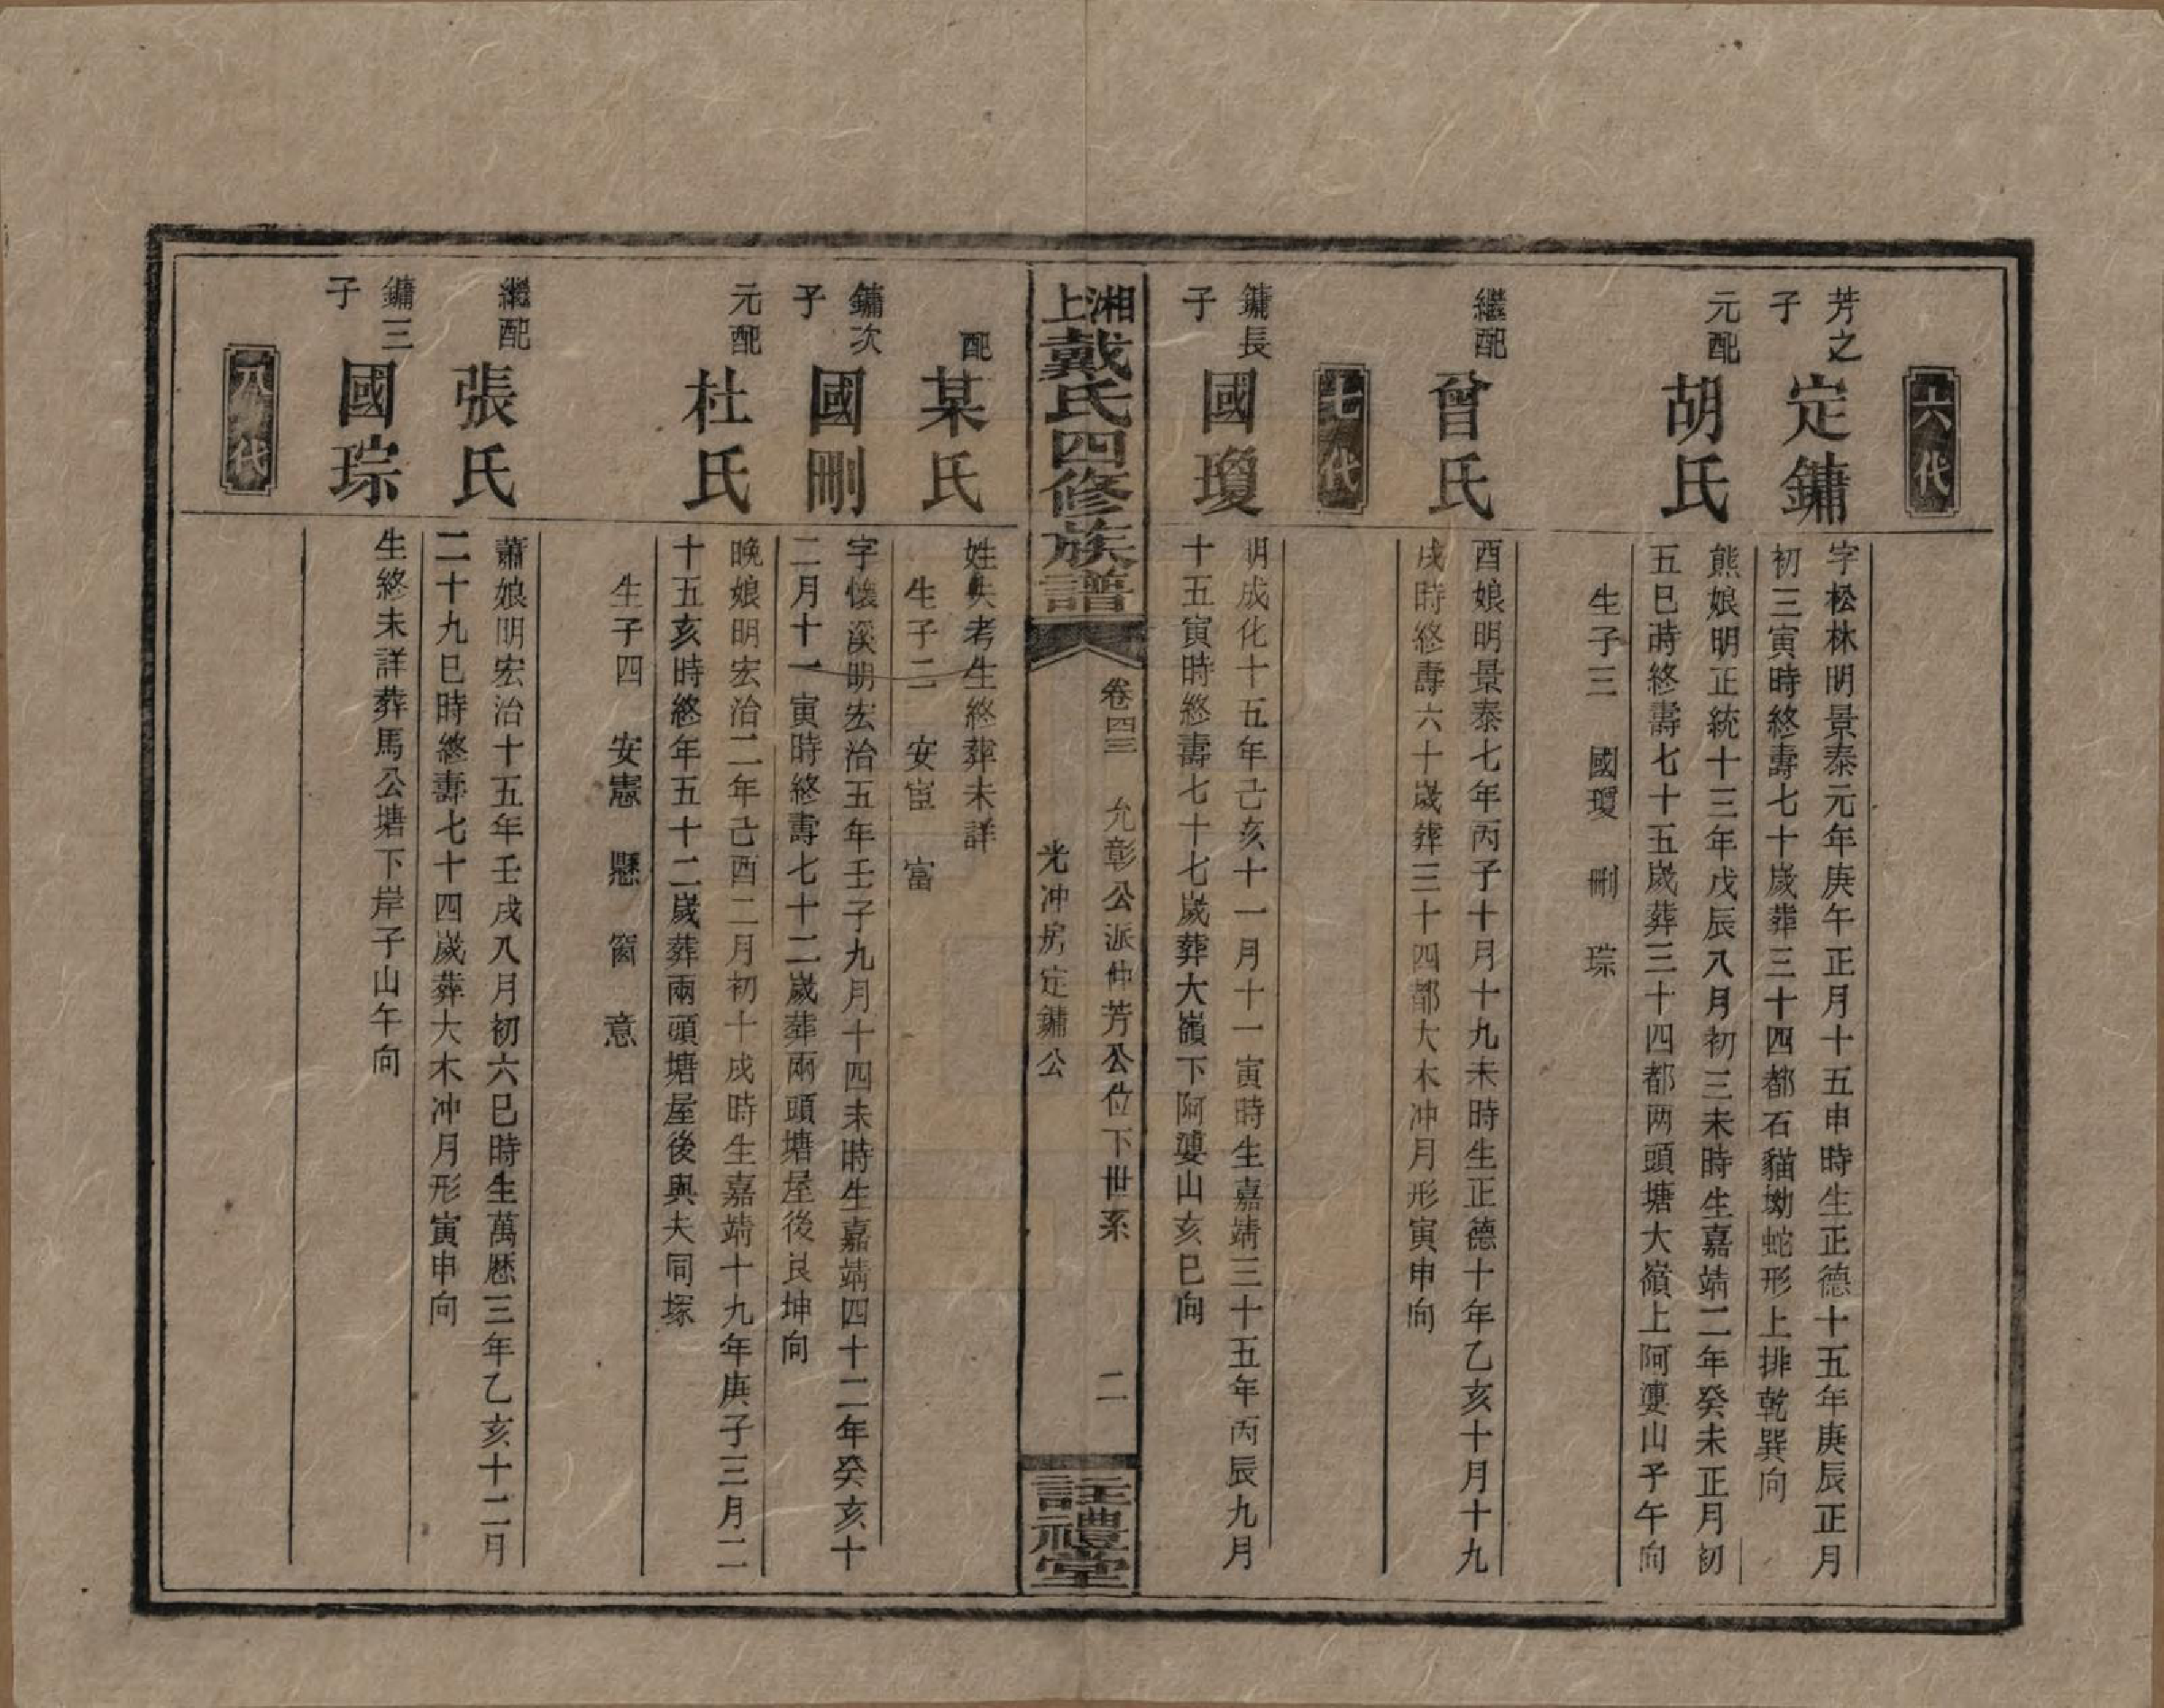 六代
芳之子
定鏞
字松林明景泰元年庚午正月十五申時生正德十五年庚辰正月
初三寅時終壽七十歲葬三十四都石貓坳蛇形上排乾巽向
元配
胡氏
熊娘明正統十三年戊辰八月初三未時生嘉靖二年癸未正月初
五巳時終壽七十五歲葬三十四都两頭塘大嶺上阿婆山子午向
生子三 國瓊 刪 琮
繼配
曾氏
酉娘明景泰七年丙子十月十九未時生正德十年乙亥十月十九
戌時終壽六十歲葬三十四都大木冲月形寅申向
七代
鏞長子
國瓊
明成化十五年己亥十一月十一寅時生嘉靖三十五年丙辰九月
十五寅時終壽七十七歲葬大嶺下阿婆山亥巳向
湘上戴氏四修族譜
卷四三 允彰公派仲芳公位下世系 二
光冲房定鏞公
註禮堂
配
某氏
姓失考生終葬未詳
生子二 安宦 富
鏞次子
國刪
字懷溪明宏治五年壬子九月十四未時生嘉靖四十二年癸亥十
二月十一寅時終壽七十二歲葬兩頭塘屋後艮坤向
元配
杜氏
晚娘明宏治二年己酉二月初十戌時生嘉靖十九年庚子三月二
十五亥時終年五十二歲葬兩頭塘屋後與夫同塚
生子四 安憲 懸 窗 意
繼配
張氏
蕭娘明宏治十五年壬戌八月初六巳時生萬厯三年乙亥十二月
二十九巳時終壽七十四歲葬大木冲月形寅申向
鏞三子
國琮
生終未詳葬馬公塘下岸子山午向
八代